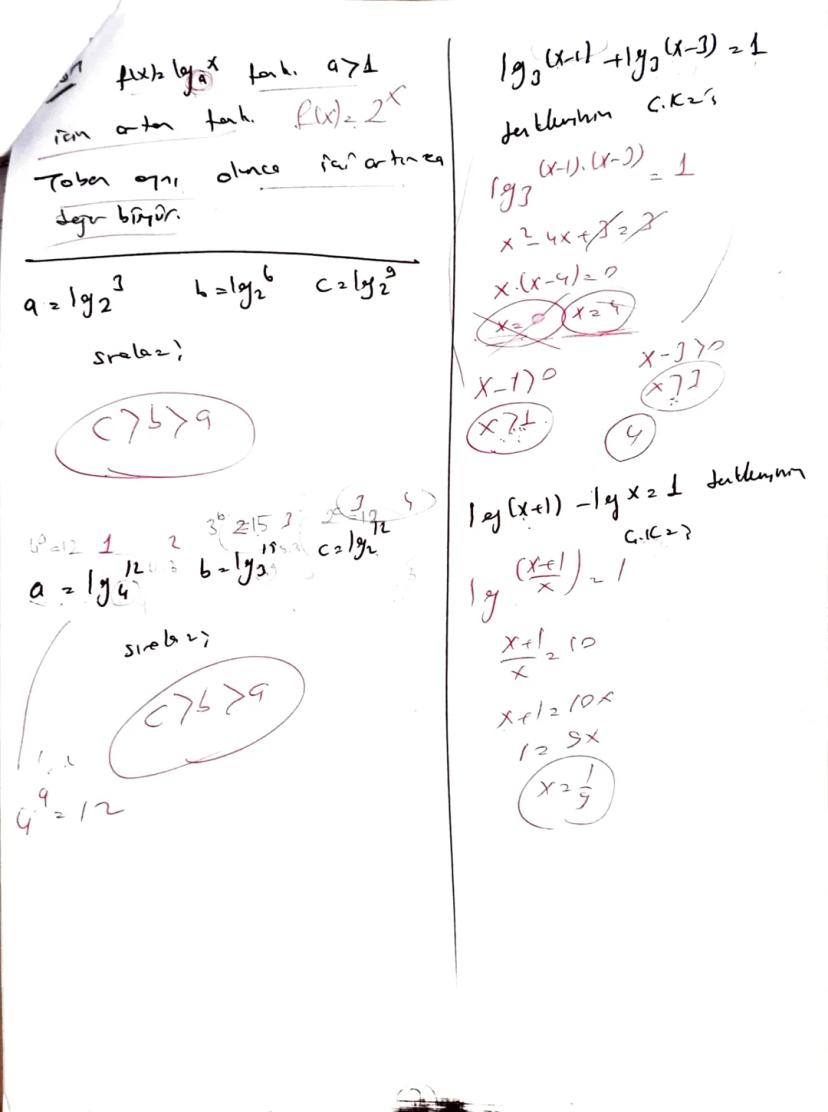 f(x)= log_a^x fonk. a>1
için artan fonk. f(x)=2^x
Taban aynı olunca içi artınca
değer büyür.
a = log_2^3 b = log_2^6 c = log_2^9
sırala?
c>b>a
1 2 3^b=15 3 3 4
a = log_4^12 b = log_3^15 c = log_2^12
sırala?
c>b>a
4^a = 12
log_3^(x-1) + log_3^(x-3) = 1
denkleminin Ç.K=?
log_3^(x-1).(x-3) = 1
x^2-4x+3=3
x.(x-4)=0
x=0 x=4
x-1>0 x-3>0
x>1 x>3
4
log(x+1) - log x = 1 denkleminin
Ç.K=?
log (x+1/x) = 1
x+1/x = 10
x+1=10x
1=9x
x=1/9